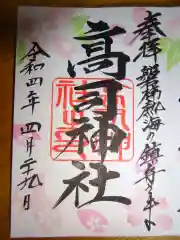 奉拝 磐梯熱海の鎮守さま
高司神社
令和四年四月二十九日